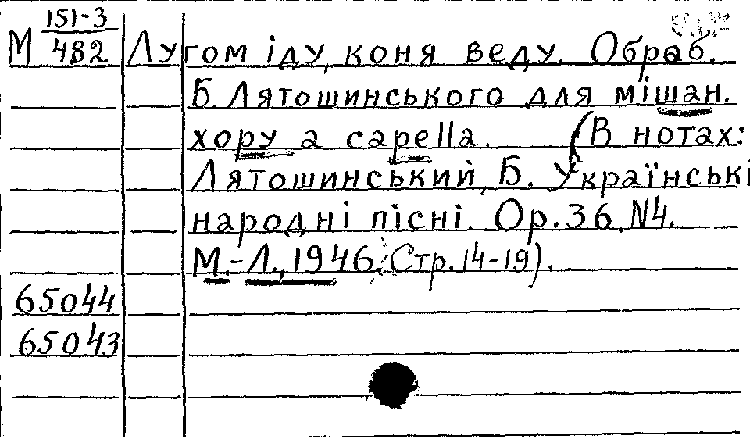 М 151-3/482 Лугом іду, коня веду. Обраб.
Б. Лятошинського для мішан.
хору a capella. (В нотах:
Лятошинський, Б. Українські
народні пісні. Ор.36, N4.
М.-Л., 1946. Стр.14-19).
65044
65043